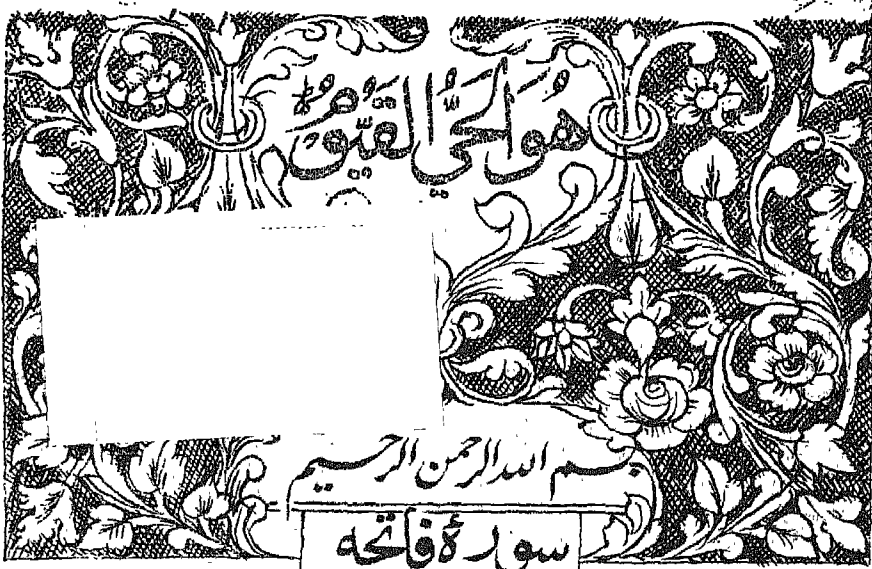 هُوَ الحَيُّ القَيُّوْمُ
بسم اللہ الرحمن الرحیم
سورۂ فاتحہ